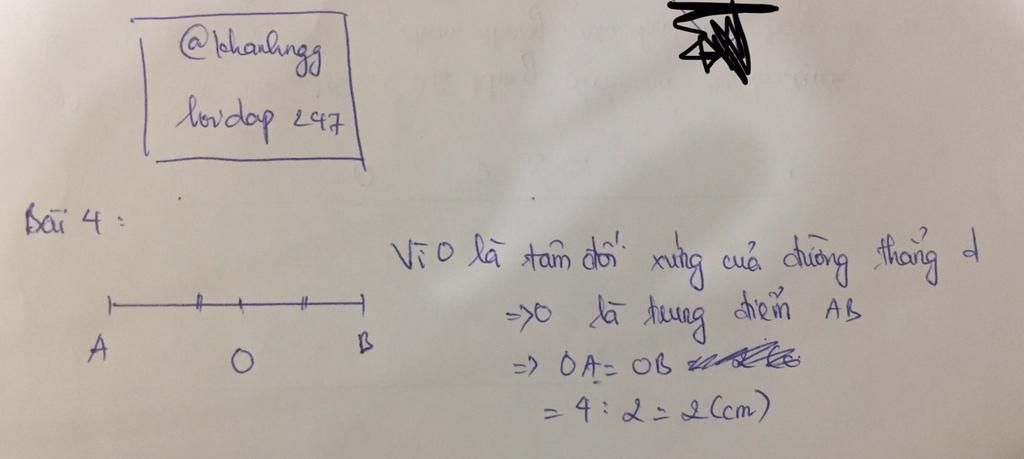 @khanhngg
loidap 247
Bài 4 :
Vì O là tâm đối xứng của đường thẳng d
=> O là trung điểm AB
A O B
=> OA = OB
= 4 : 2 = 2 (cm)